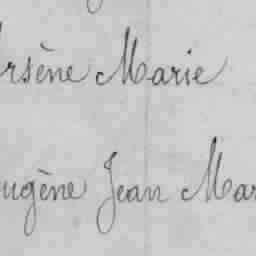 rsène Marie
ugène Jean Mar